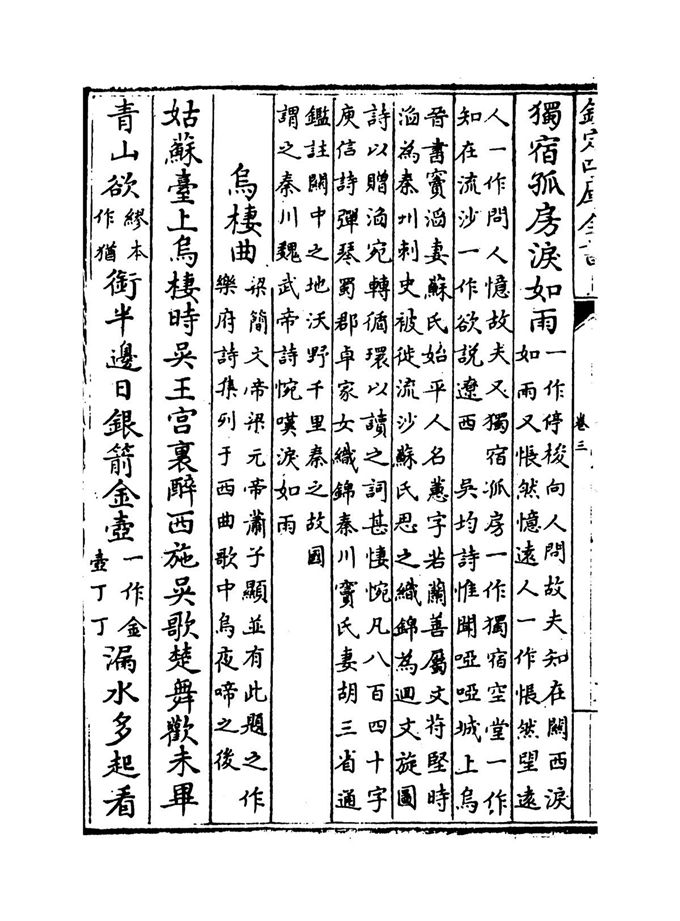 欽定四庫全書
卷三
獨宿孤房淚如雨一作停梭向人問故夫知在關西淚
如雨又悵然憶遠人一作悵然望遠
人一作問人憶故夫又獨宿孤房一作獨宿空堂一作
知在流沙一作欲説遼西 吳均詩惟聞啞啞城上烏
晉書竇滔妻蘇氏始平人名蕙字若蘭善屬文苻堅時
滔為秦州刺史被徙流沙蘇氏思之織錦為迴文旋圖
詩以贈滔宛轉循環以讀之詞甚悽惋凡八百四十字
庾信詩彈琴蜀郡卓家女織錦秦川竇氏妻胡三省通
鑑註關中之地沃野千里秦之故國
謂之秦川魏武帝詩惋嘆淚如雨
烏棲曲梁簡文帝梁元帝蕭子顯並有此題之作
樂府詩集列于西曲歌中烏夜啼之後
姑蘇臺上烏棲時吳王宮裏醉西施吳歌楚舞歡未畢
青山欲繆本作猶銜半邊日銀箭金壺一作金壺丁丁漏水多起看